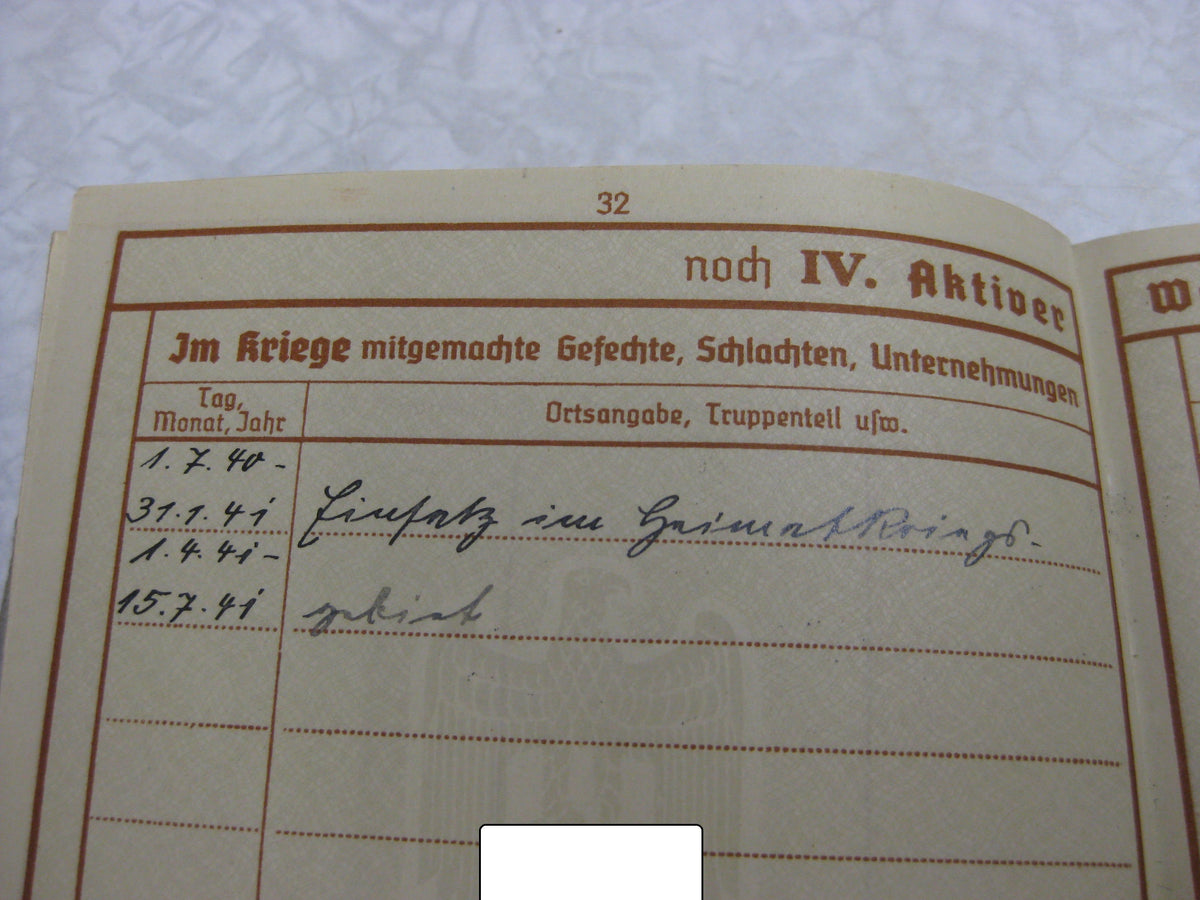 32
noch IV. Aktiver
W
Im Kriege mitgemachte Gefechte, Schlachten, Unternehmungen
Tag,
Monat, Jahr
Ortsangabe, Truppenteil usw.
1.7.40-
31.1.41 Einsatz im Heimatkriegs-
1.4.41-
15.7.41 gebiet